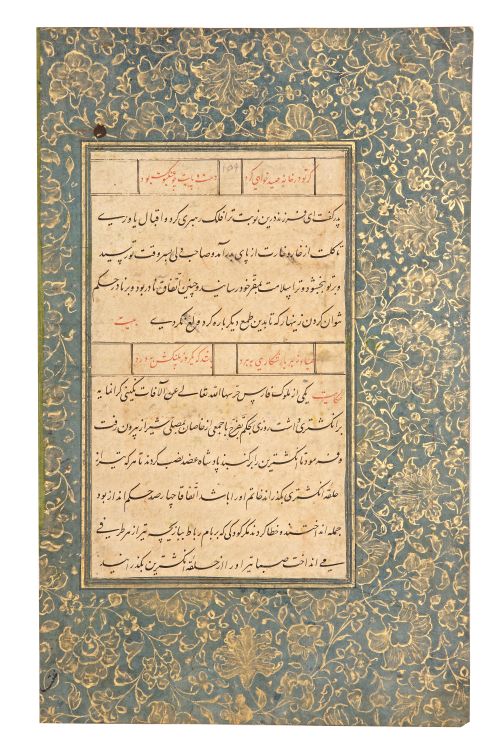 گر تو در خانه صید خواهی کرد دست و پایت چو عنکبوت بود
پدر گفت ای فرزند درین نوبت ترا فلک رهبری کرد و اقبال یاوری
تا گلت از خار و خارت از پای بدر آمد و صاحب دولتی بسر وقت تو رسید
و بر تو ببخشود و ترا بسلامت بمقر خود رسانید و چنین اتفاق نادر بود و بر نادر حکم
نتوان کردن زینهار که تا بدین طمع دیگر باره گرد ولع نگردی بیت
صیاد نه هر بار شکاری ببرد باشد که یکروز پلنگش بدرد
حکایت یکی از ملوک فارس حرسها الله تعالی عن الآفات نگینی گرانمایه
بر انگشتری داشت روزی بحکم تفرج با جمعی از خاصان بمصلی شیراز بیرون رفت
و فرمود تا انگشترین را بر گنبد پادشاه عضد نصب کردند تا هر که تیر از
حلقه انگشتری بگذراند خاتم او را باشد اتفاقا چهارصد حکم انداز بود
جمله انداختند و خطا کردند مگر کودکی که بر بام رباط ببازیچه تیر از هر طرفی
می انداخت صبا تیر او را از حلقه انگشترین بگذرانید